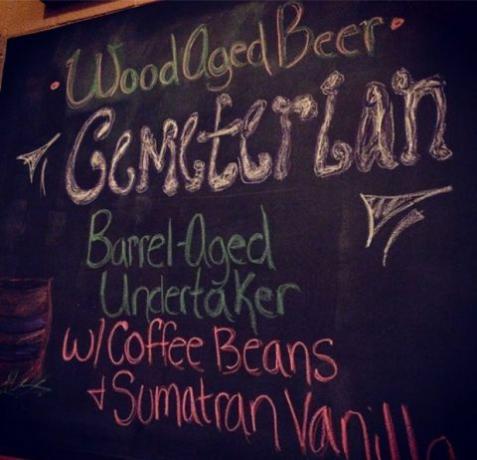 ·Wood Aged Beer·
Cemeterian
Barrel-Aged
Undertaker
w/Coffee Beans
+ Sumatran Vanilla